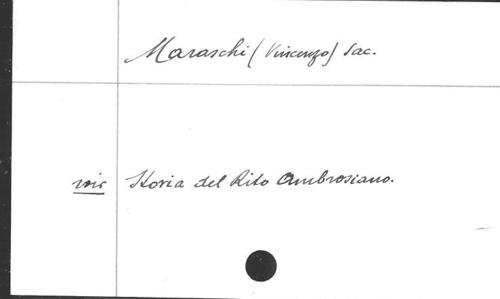 Maraschi (Vincenzo) Sac.
voir Storia del Rito Ambrosiano.